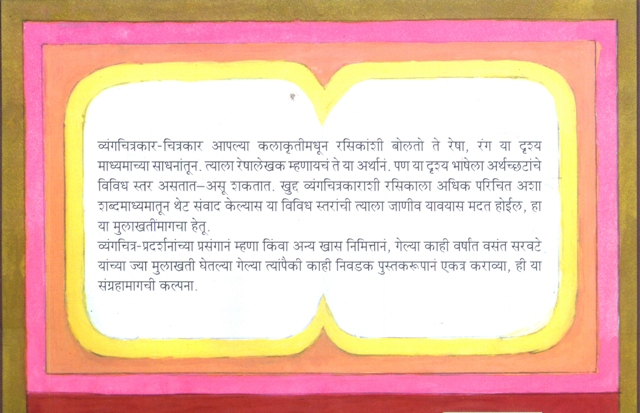 व्यंगचित्रकार-चित्रकार आपल्या कलाकृतीमधून रसिकांशी बोलतो ते रेषा, रंग या दृश्य
माध्यमाच्या साधनांतून. त्याला रेषालेखक म्हणायचं ते या अर्थानं. पण या दृश्य भाषेला अर्थच्छटांचे
विविध स्तर असतात–असू शकतात. खुद्द व्यंगचित्रकाराशी रसिकाला अधिक परिचित अशा
शब्दमाध्यमातून थेट संवाद केल्यास या विविध स्तरांची त्याला जाणीव यावयास मदत होईल, हा
या मुलाखतींमागचा हेतू.
व्यंगचित्र-प्रदर्शनांच्या प्रसंगानं म्हणा किंवा अन्य खास निमित्तानं, गेल्या काही वर्षात वसंत सरवटे
यांच्या ज्या मुलाखती घेतल्या गेल्या त्यांपैकी काही निवडक पुस्तकरूपानं एकत्र कराव्या, ही या
संग्रहामागची कल्पना.